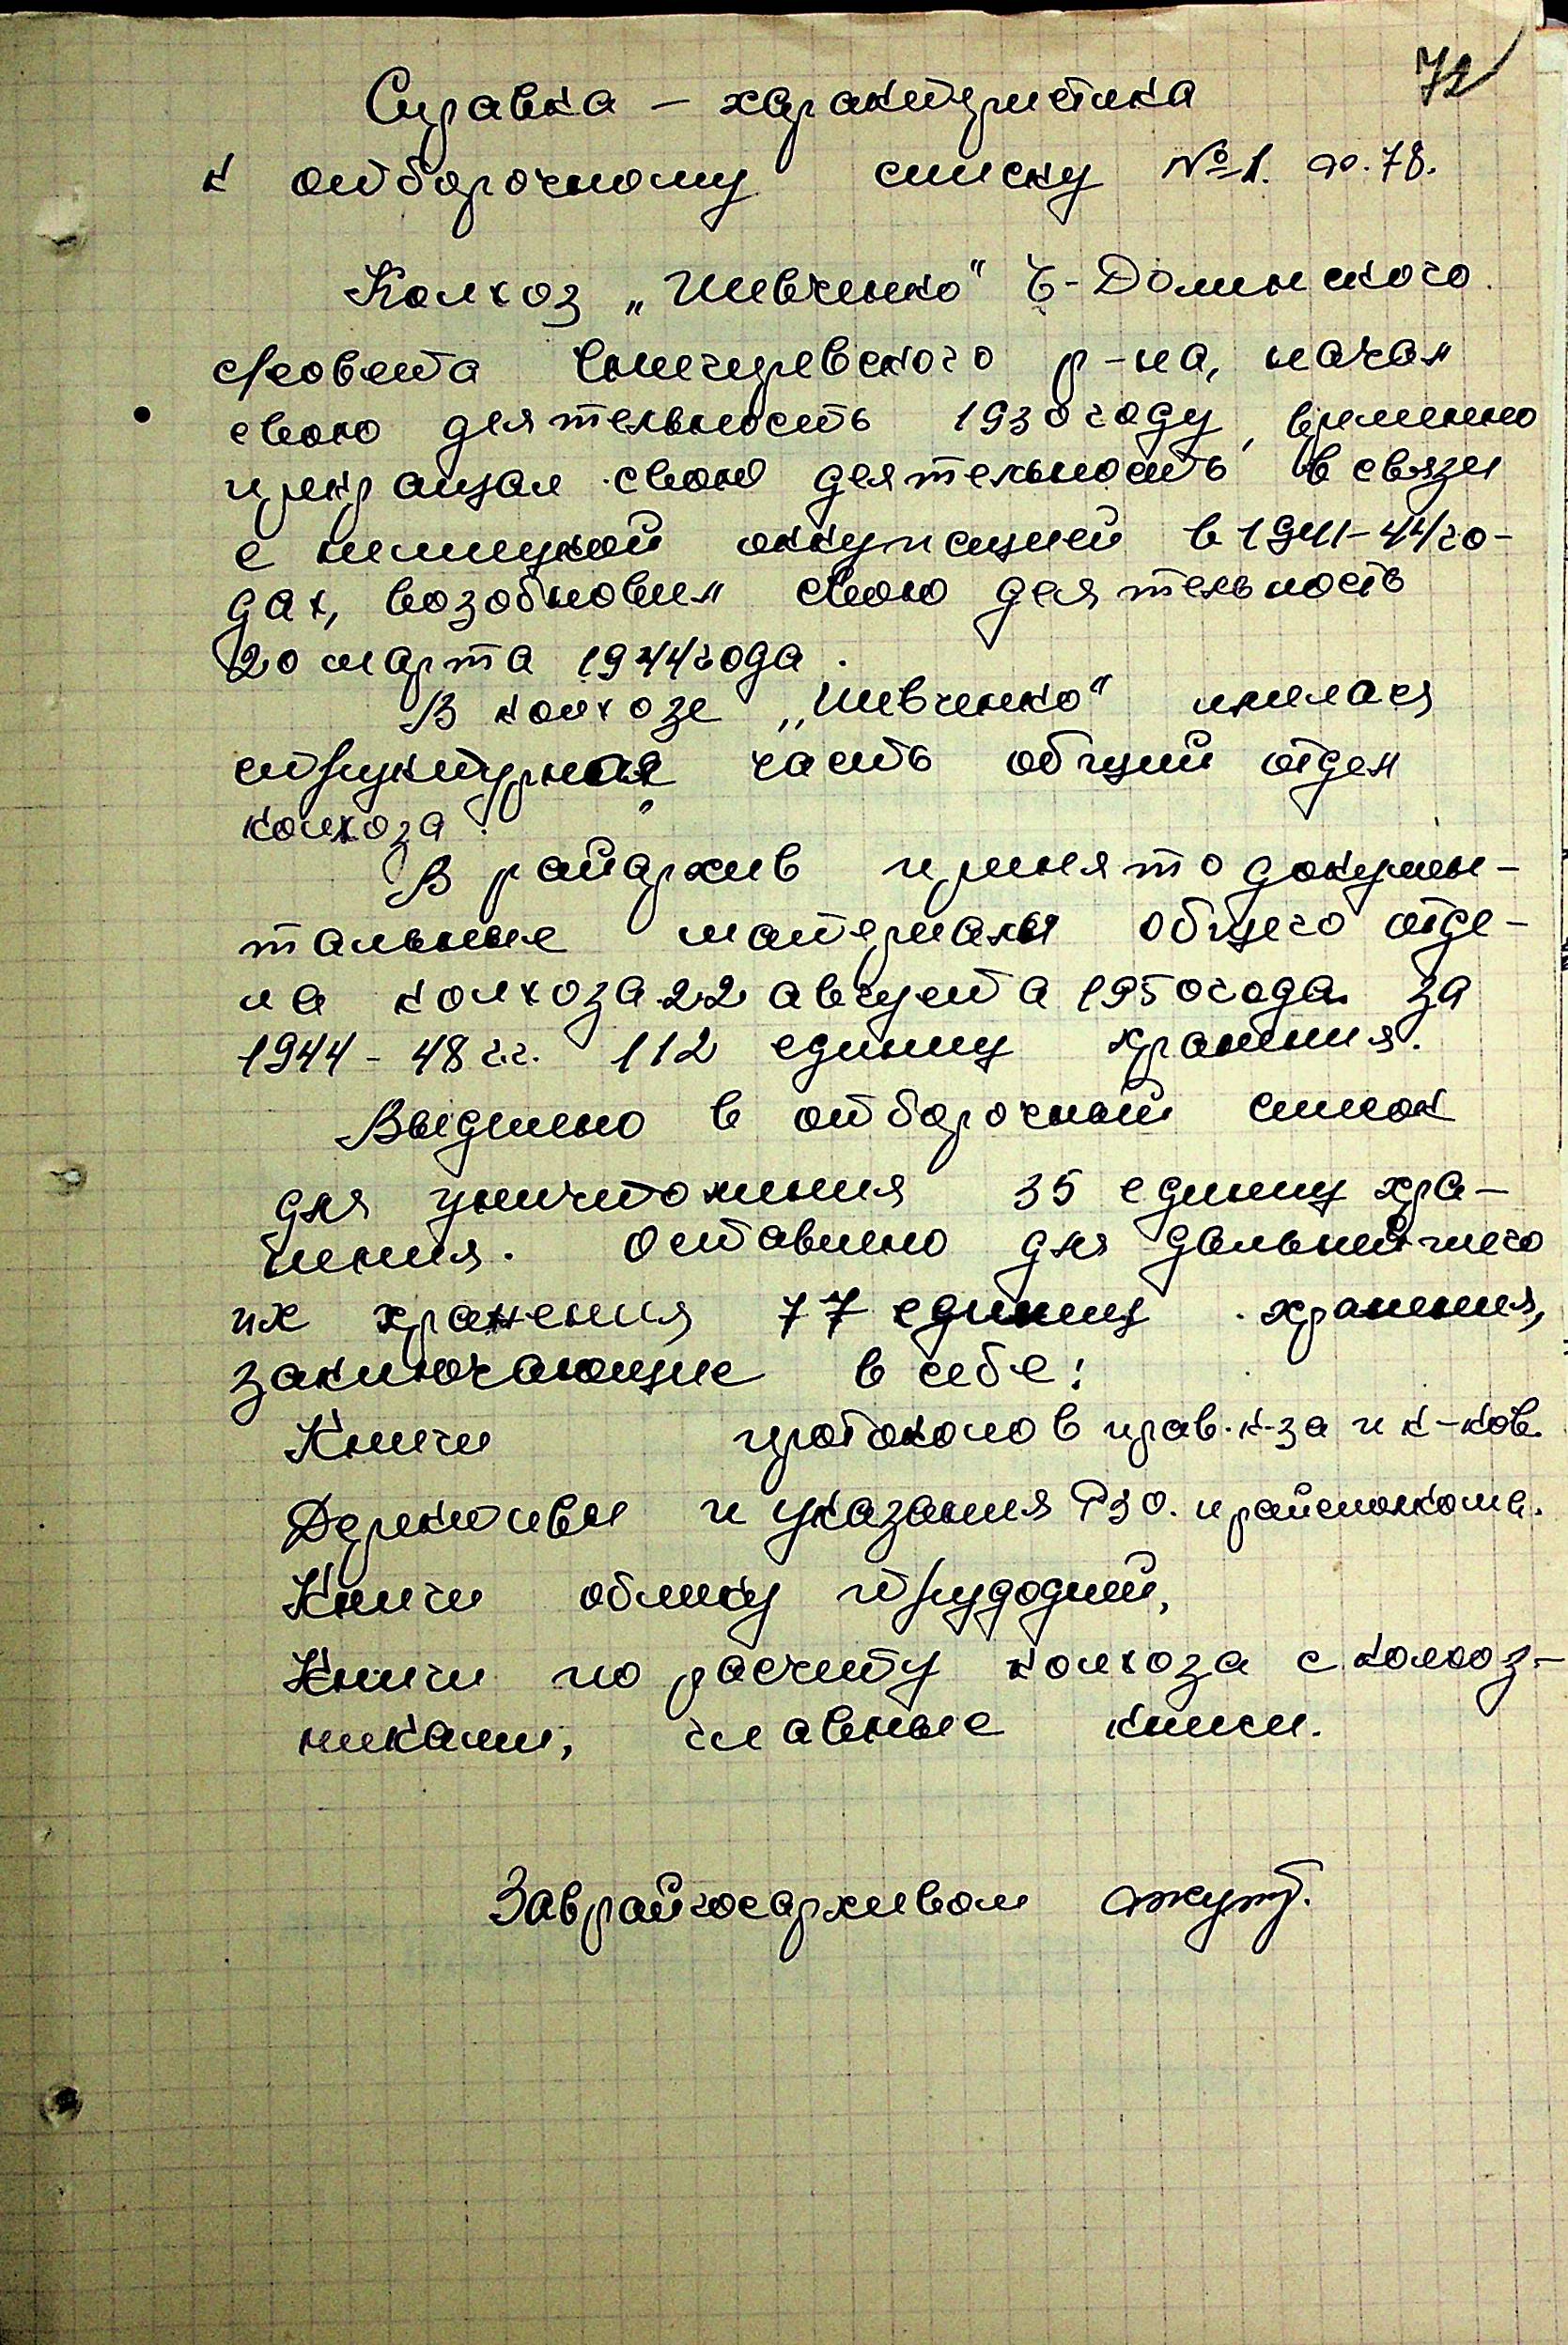 72
Справка – характеристика
к отборочному списку №1. ф. 78.
Колхоз „Шевченко" Б-Долинского
с/совета Снегиревского р-на, начал
свою деятельность 1930 году, временно
прекращал свою деятельность в связи
с немецкой оккупацией в 1941-44 го-
дах, возобновил свою деятельность
20 марта 1944 года.
В колхозе „Шевченко" имелася
структурная часть общий отдел
колхоза.
В райархив принято докумен-
тальные материалы общего отде-
ла колхоза 22 августа 1950 года. за
1944 - 48 г.г. 112 единиц хранения.
Выделено в отборочный список
для уничтожения 35 единиц хра-
нения. Оставлено для дальнейшего
их хранения 77 единиц хранения,
заключающие в себе:
Книги протоколов прав. к-за и к-ков.
Дерективы и указания РЗО. и райисполкома.
Книги облику трудодней,
Книги по расчету колхоза с колхоз-
никами, главные книги.
Заврайгосархивом